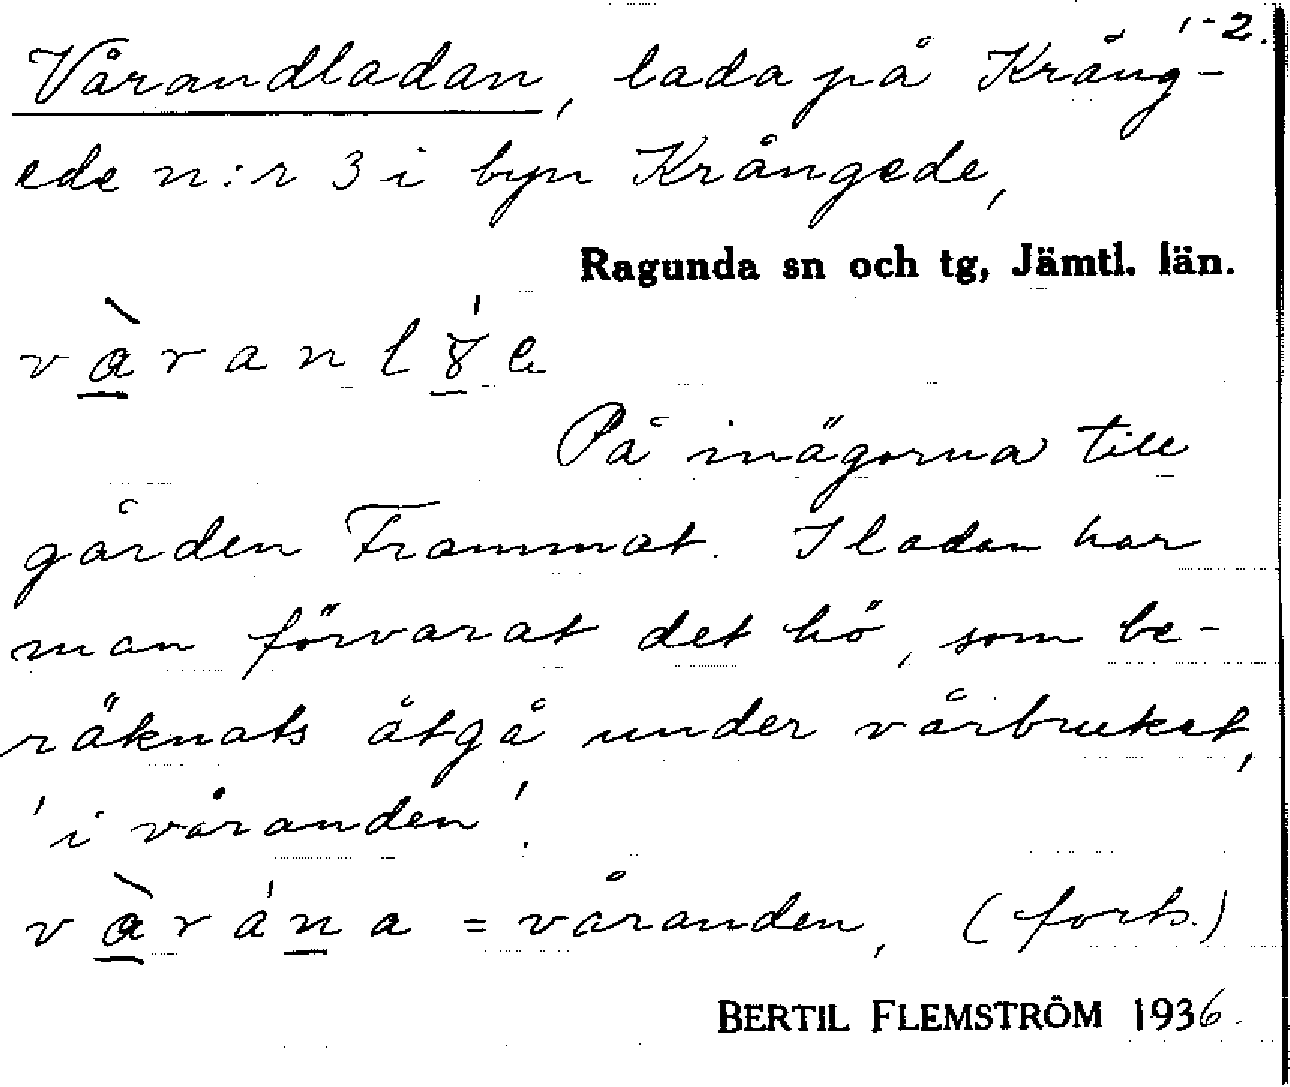 1-2.
Vårandladan, lada på Kräng-
ede n:r 3 i byn Krångede,
Ragunda sn och tg, Jämtl. län.
På inägorna till
gården Frammat. I ladan har
man förvarat det hö, som be-
räknats åtgå under vårbruket,
'i våranden'.
= våranden, (forts.)
BERTIL FLEMSTRÖM 1936.